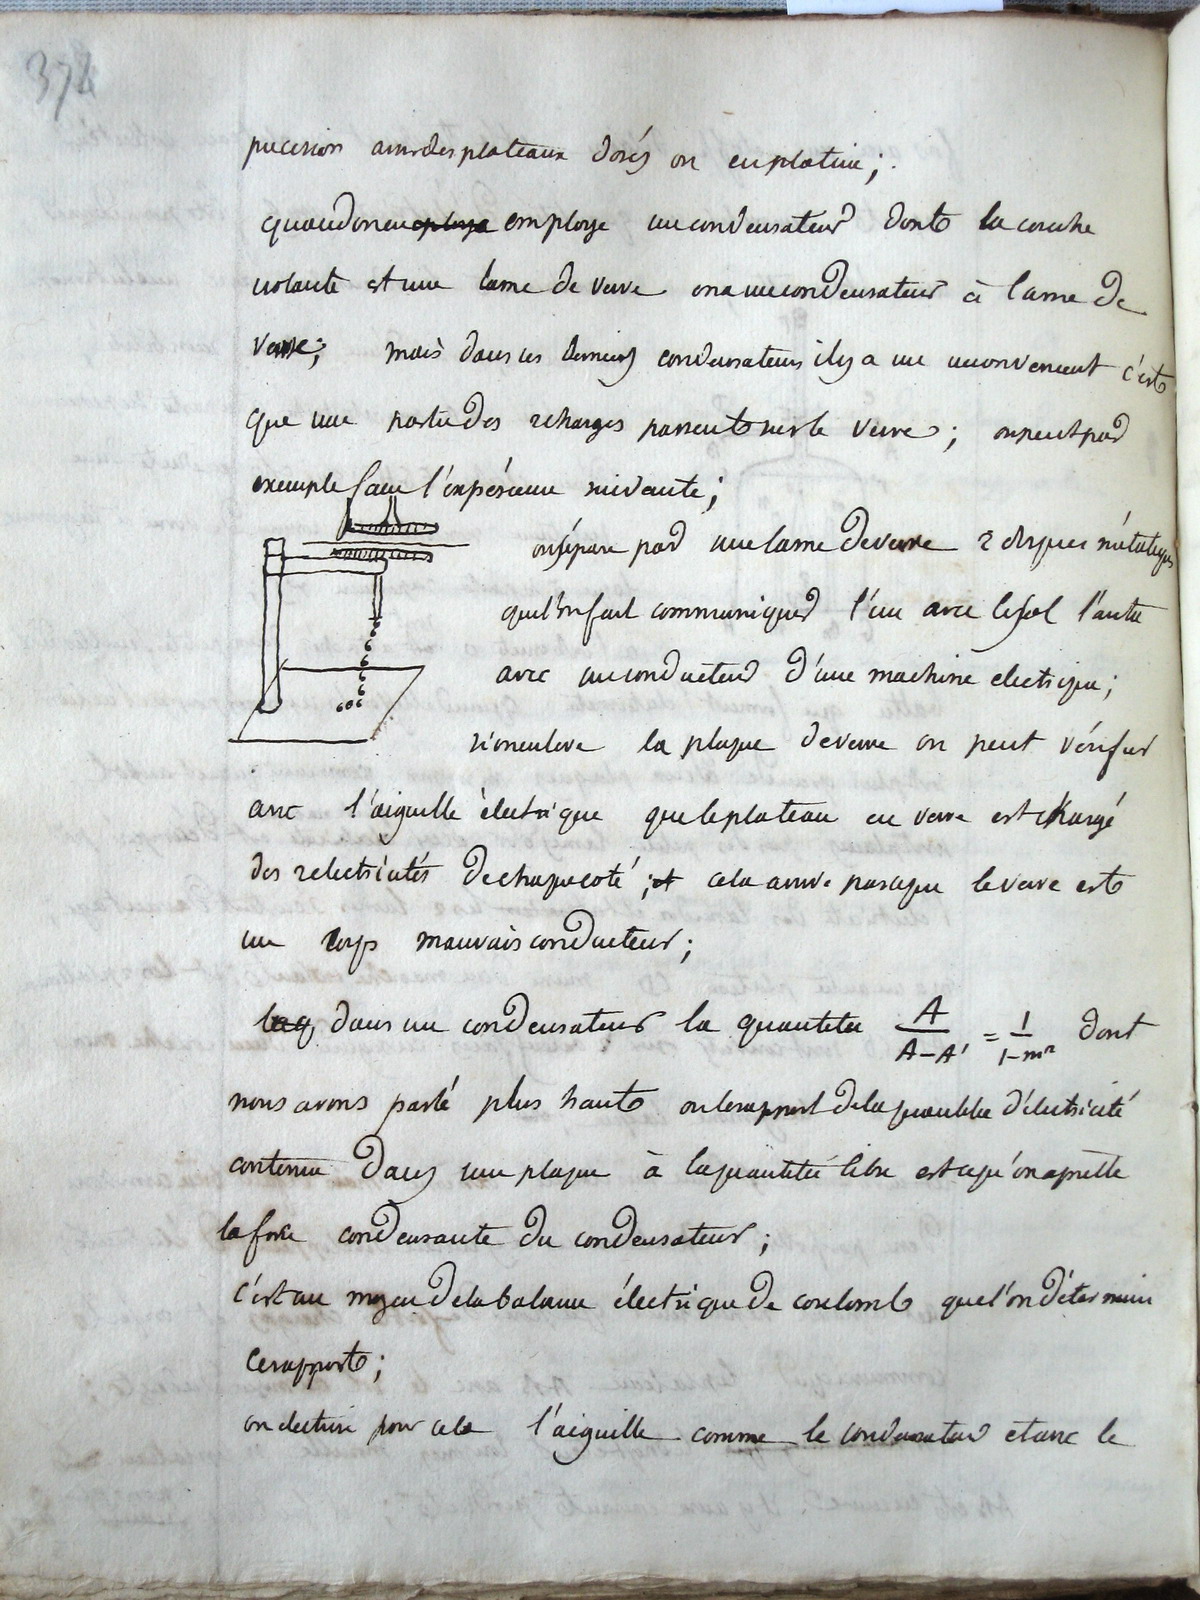 374
precision avec des plateaux dorés ou en platine;
quand on en employe un condensateur dont la couche
isolante est une lame de verre on a un condensateur à lame de
verre; mais dans ces derniers condensateurs il y a un inconvenient c'est
que une partie des 2 charges passent sur le verre; on peut par
exemple faire l'expérience suivante;
on sépare par une lame de verre 2 disques métaliques
que l'on fait communiquer l'un avec le sol l'autre
avec un conducteur d'une machine electrique;
si on enleve la plaque de verre on peut vérifier
avec l'aiguille électrique que le plateau en verre est chargé
des 2 electricités de chaque coté; cela arrive parceque le verre est
un corps mauvais conducteur;
dans un condensateur la quantitée A/(A-A') = 1/(1-m²) dont
nous avons parlé plus haut ou le rapport de la quantitée d'électricité
contenue dans une plaque à la quantitée libre est ce qu'on apelle
la force condensante du condensateur;
c'est au moyen de la balance électrique de coulomb que l'on détermine
ce rapport;
on electrise pour cela l'aiguille comme le condensateur et avec le